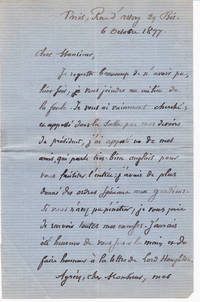 Paris, Rue d'
6 Octobre 1877.
Cher Monsieur,
Je regrette beaucoup de n'avoir pu,
hier soir, vous joindre au milieu de
la foule. Je vous ai vainement cherché,
et appelé dans la salle par mes devoirs
de président, j'ai aposté un de mes
amis, qui parle très bien anglais pour
vous faciliter l'entrée; j'avais de plus
donné des ordres spéciaux aux gardiens.
Si vous n'avez pu pénétrer, je vous prie
de recevoir toutes mes excuses. J'aurais
été heureux de vous la main et de
faire honneur à la lettre de Lord Houghton.
Agréez, cher Monsieur, mes